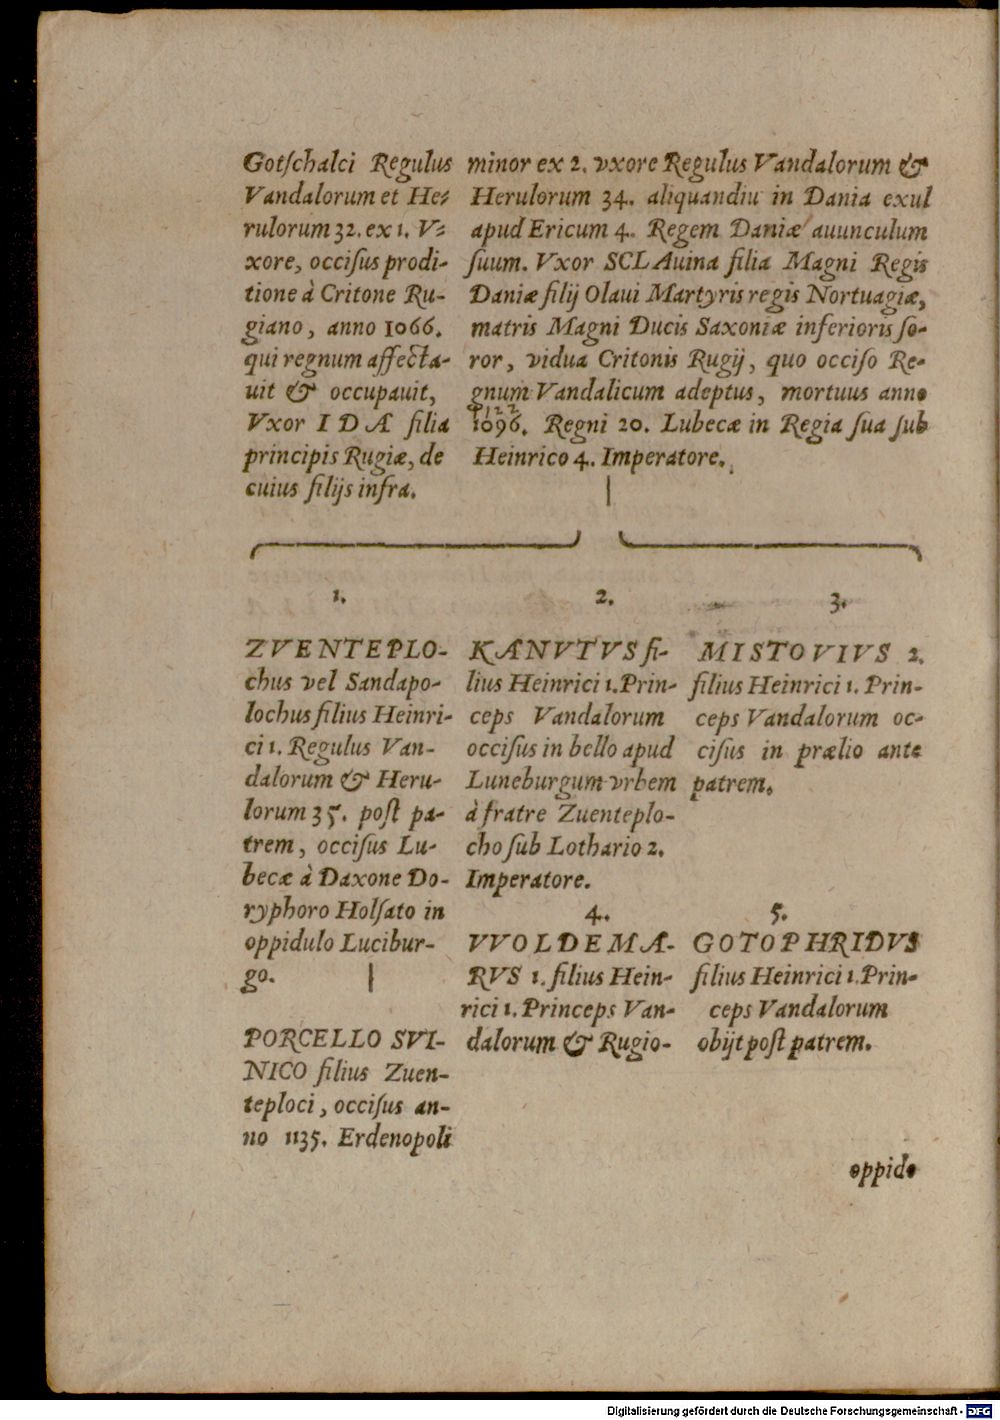 Gotſchalci Regulus
Vandalorum et He⸗
rulorum 32. ex 1. V⸗
xore, occiſus prodi-
tione à Critone Ru-
giano, anno 1066.
qui regnum affecta-
uit & occupauit,
Vxor IDÆ filia
principis Rugiæ, de
cuius filijs infra.
minor ex 2. vxore Regulus Vandalorum &
Herulorum 34. aliquandiu in Dania exul
apud Ericum 4. Regem Daniæ auunculum
ſuum. Vxor SCLAuina filia Magni Regis
Daniæ filij Olaui Martyris regis Nortuagiæ,
matris Magni Ducis Saxoniæ inferioris ſo-
ror, vidua Critonis Rugij, quo occiſo Re-
gnum Vandalicum adeptus, mortuus anno
1122
1096. Regni 20. Lubecæ in Regia ſua ſub
Heinrico 4. Imperatore.
1.
ZVENTEPLO-
chus vel Sandapo-
lochus filius Heinri-
ci 1. Regulus Van-
dalorum & Heru-
lorum 35. poſt pa-
trem, occiſus Lu-
becæ à Daxone Do-
ryphoro Holſato in
oppidulo Lucibur-
go.
PORCELLO SVI-
NICO filius Zuen-
teploci, occiſus an-
no 1135. Erdenopoli
2.
KANVTVS fi-
lius Heinrici 1. Prin-
ceps Vandalorum
occiſus in bello apud
Luneburgum vrbem
à fratre Zuenteplo-
cho ſub Lothario 2.
Imperatore.
3.
MISTOVIVS 2.
filius Heinrici 1. Prin-
ceps Vandalorum oc-
ciſus in prælio ante
patrem.
4.
VVOLDEMA-
RVS 1. filius Hein-
rici 1. Princeps Van-
dalorum & Rugio-
5.
GOTOPHRIDVS
filius Heinrici 1. Prin-
ceps Vandalorum
obijt poſt patrem.
oppido
Digitalisierung gefördert durch die Deutsche Forschungsgemeinschaft - DFG